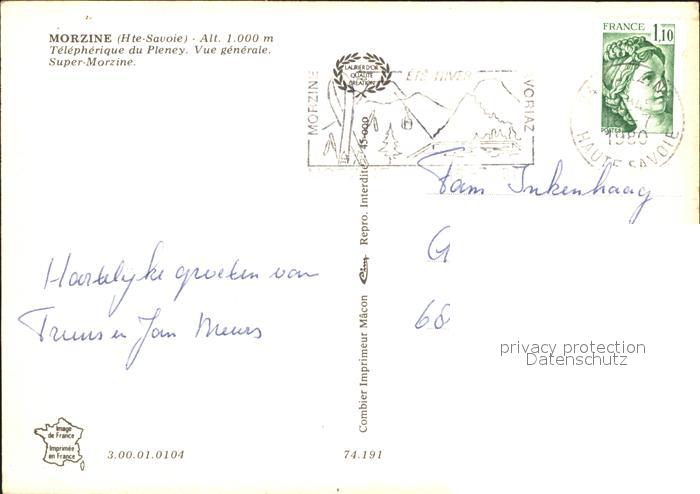 MORZINE (Hte-Savoie) - Alt. 1.000 m
Téléphérique du Pleney. Vue générale.
Super-Morzine.
FRANCE 1,10
POSTES
LAURIER D'OR
QUALITÉ
CRÉATION
MORZINE
ÉTÉ HIVER
VORIAZ
7
1980
HAUTE SAVOIE
Fam Inkenhaag
G
68
Hartelijke groeten van
Truus en Jan Meurs
Combier Imprimeur Mâcon Cim Repro. Interdite 45-000
privacy protection
Datenschutz
Image
de France
Imprimée
en France
3.00.01.0104
74.191